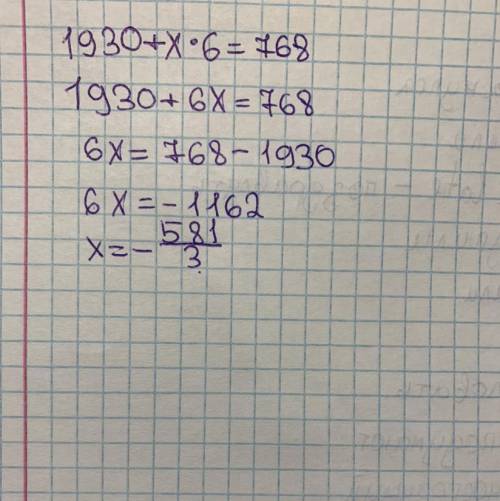 1930+x·6=768
1930+6x=768
6x=768-1930
6x=-1162
x=-581/3